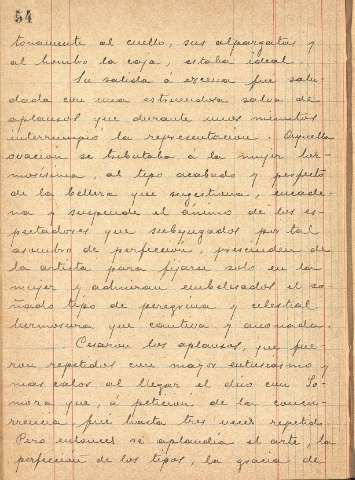 54
tonamente al cuello, sus alpargatas y
al hombro la caja, estaba ideal.
Su salida á escena fue salu-
dada con una estruendosa salva de
aplausos que durante unos minutos
interrumpió la representacion. Aquella
ovacion se tributaba a la mujer her-
mosisima, al tipo acabado y perfecto
de la belleza que sugestiona, encade-
na y suspende el ánimo de los es-
pectadores que subyugados por tal
asombro de perfección, prescinden de
la artista para fijarse solo en la
mujer y admiran embelesados el so-
ñado tipo de peregrina y celestial
hermosura que cautiva y anonada.
Cesaron los aplausos, que fue-
ron repetidos con mayor entusiasmo y
mas calor al llegar el duo con
que, á petición de la concu-
rrencia, fué hasta tres veces repetido.
Pero entonces se aplaudia el arte, la
perfeccion de los tipos, la gracia de